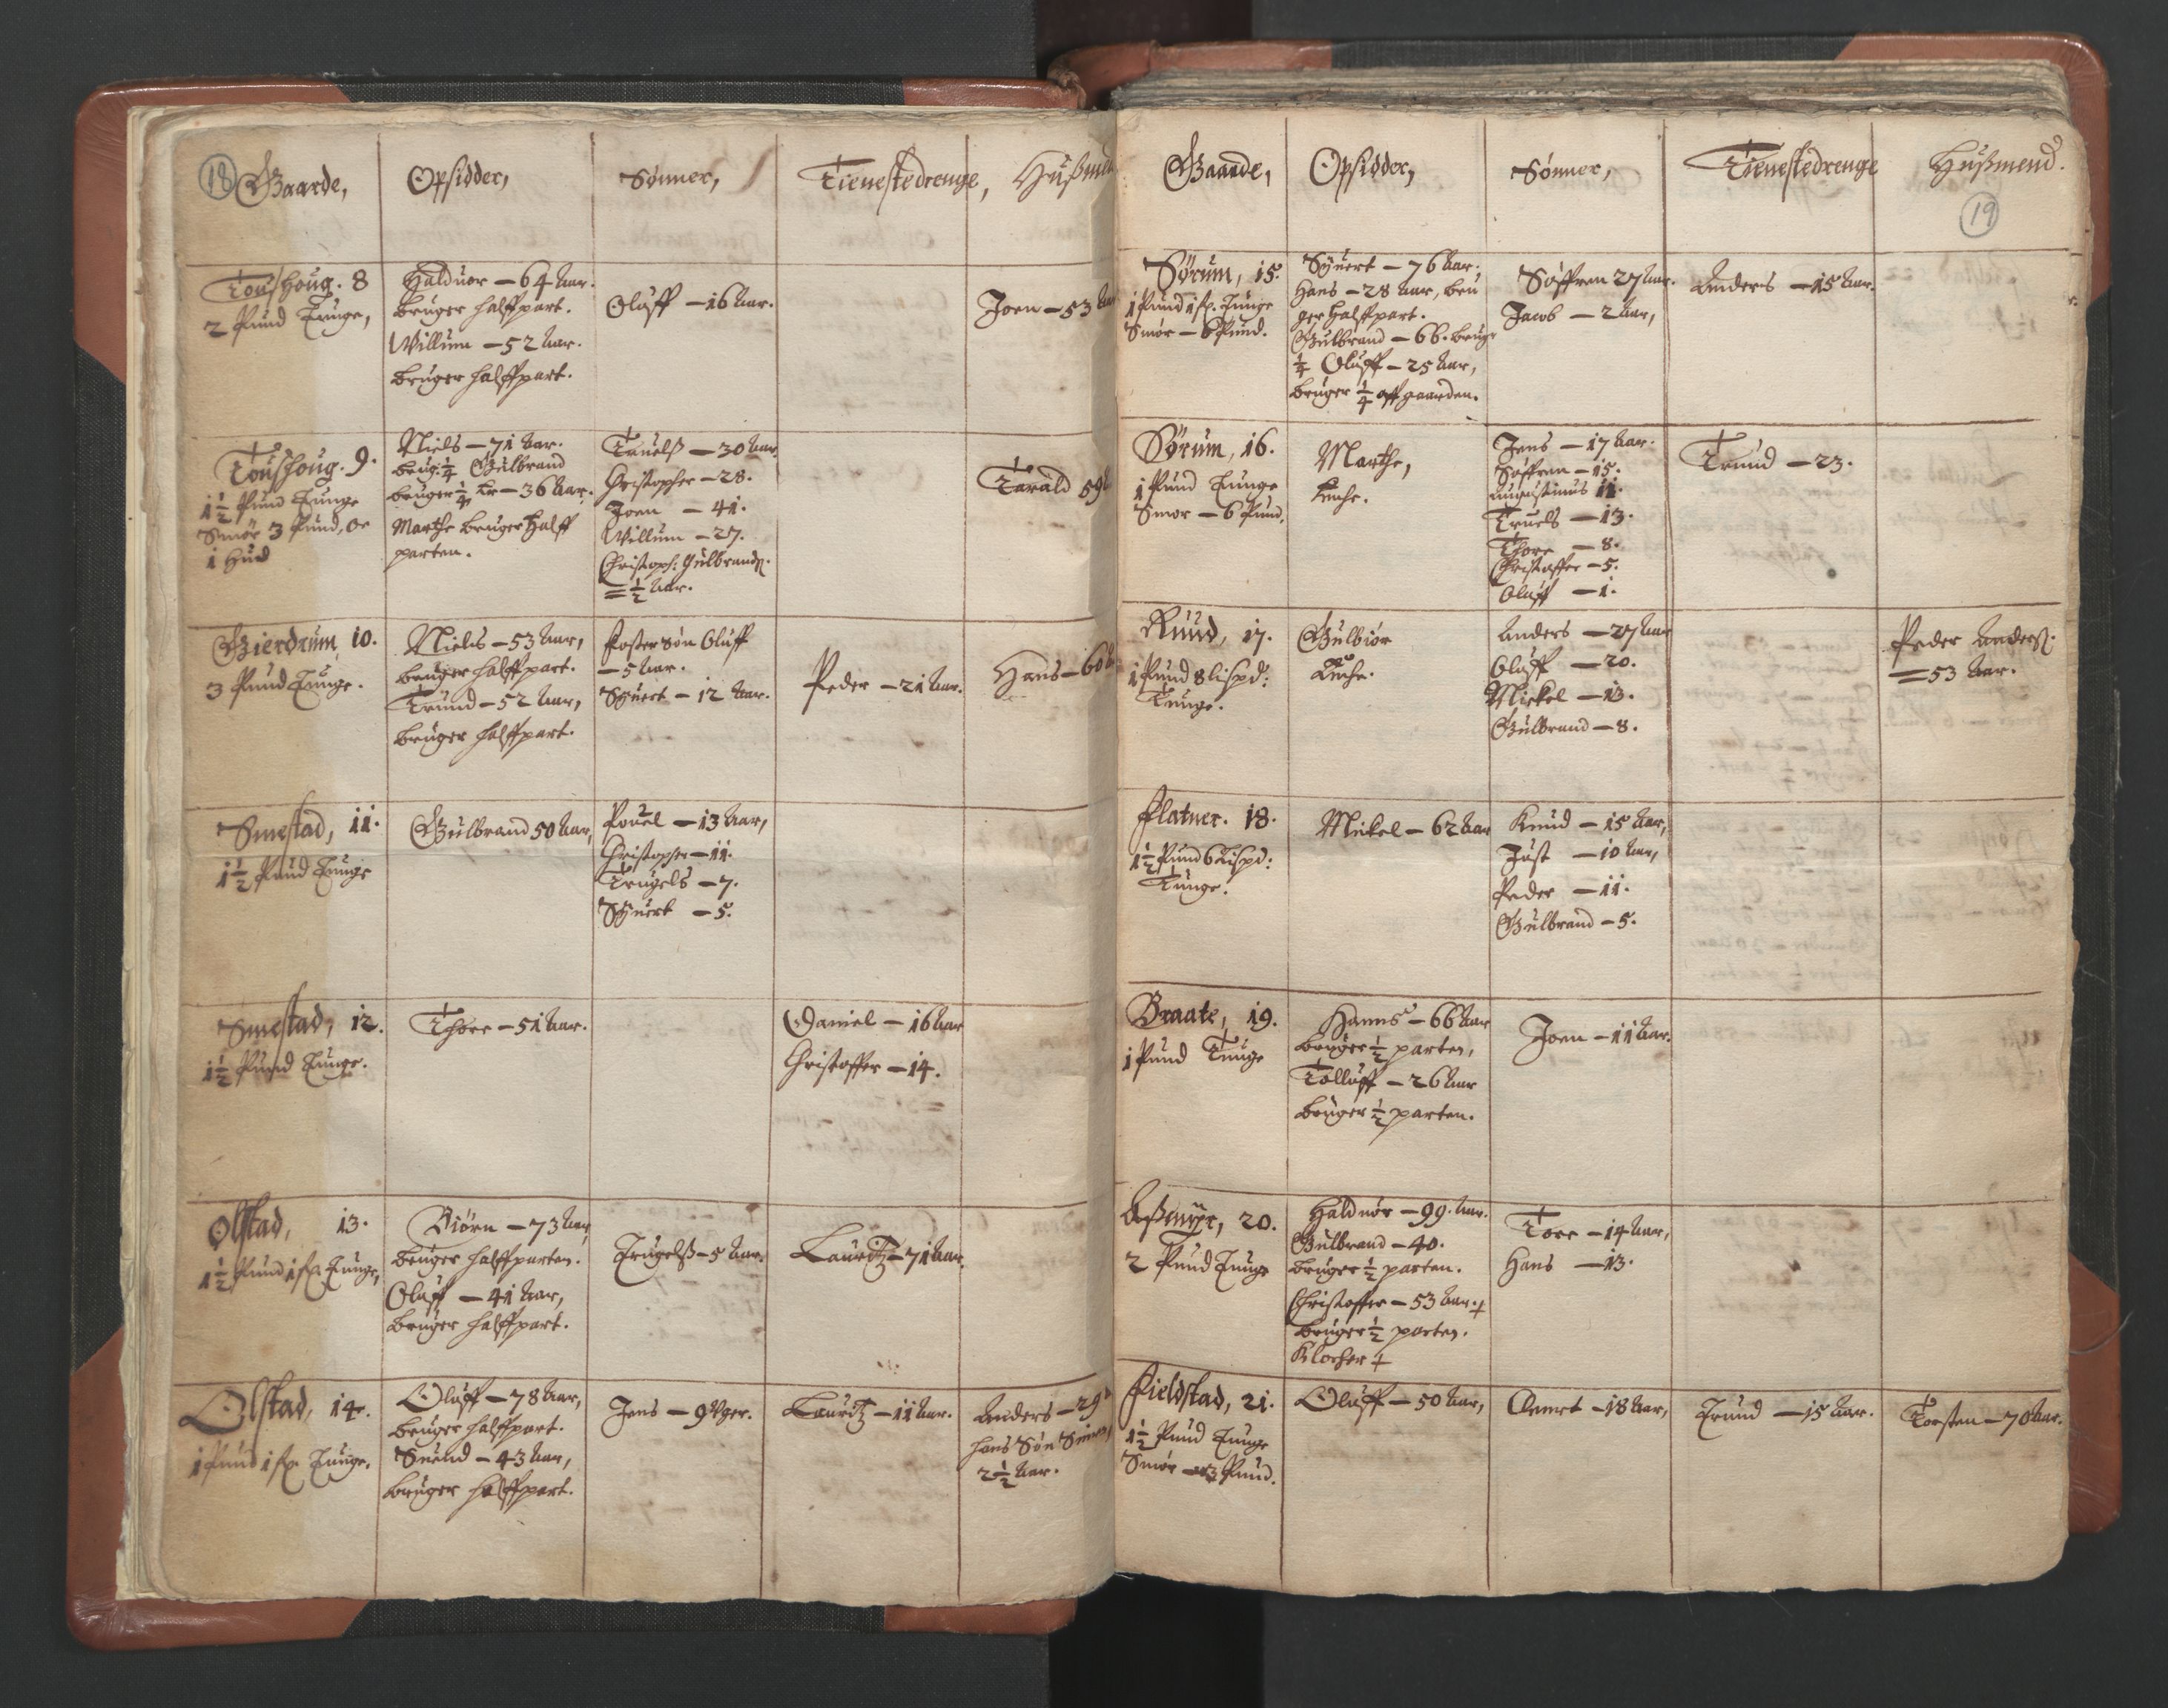 18
Gaarde,
Opsidder,
Sønner,
Tienestedrenge,
Toushoug. 8
2 Pund Tunge,
Halduor – 64 Aar.
bruger halffpart.
Willum – 52 Aar.
bruger halffpart.
Oluff – 16 Aar.
Joen – 53
Toushoug. 9.
1½ Pund Tunge
Smør 3 Pund, oc
1 Hud
Niels – 71 Aar.
brug: ¼ Gulbrand
bruger ¼ – 36 Aar.
Marthe bruger Halff
parten.
Tauelß – 30 Aar.
Christopher – 28.
Joen – 41.
Willum – 27.
Christoph: Gulbrandß.
= ½ Aar.
Tarald 59
Gierdrum, 10.
3 Pund Tunge.
Niels – 53 Aar,
bruger halffpart.
Trund – 52 Aar,
bruger halffpart.
Foster Søn Oluff
– 5 Aar.
Syuert – 12 Aar.
Peder – 21 Aar.
Hans – 60
Smestad, 11.
1½ Pund Tunge
Gulbrand 50 Aar,
Pouel – 13 Aar,
Christopher – 11.
Trugels – 7.
Syuert – 5.
Smestad, 12.
1½ Pund Tunge.
Thore – 51 Aar.
Daniel – 16 Aar
Christoffer – 14.
Olstad, 13.
1½ Pund 1 fr: Tunge,
Biørn – 73 Aar,
bruger halffparten.
Oluff – 41 Aar,
bruger halffpart.
Trugelß – 5 Aar.
Lauritz – 71 Aar.
Olstad, 14.
1 Pund 1 fr: Tunge.
Oluff – 78 Aar,
bruger halffpart.
Suend – 43 Aar,
bruger halffpart.
Jens – 9 Uger.
Lauritz – 11 Aar.
Anders – 29
hans Søn
2½ Aar.
Gaarde,
Opsidder,
Sønner,
Tienestedrenge
Hußmend.
19
Sørum, 15.
1 Pund 1 fr. Tunge
Smør – 6 Pund.
Syuert – 76 Aar.
Hans – 28 Aar, bru
ger Halffpart.
Gulbrand – 66. bruger
¼ Oluff – 25 Aar,
bruger ¼ aff gaarden.
Søffren 27 Aar.
Jacob – 2 Aar,
Anders – 15 Aar.
Sørum, 16.
1 Pund Tunge
Smør – 6 Pund.
Marthe,
Enche.
Jens – 17 Aar.
Søffren – 15.
Augustinus 11.
Truels – 13.
Thore – 8.
Christoffer – 5.
Oluff – 1.
Trund – 23.
Ruud, 17.
1 Pund 8 lispd:
Tunge.
Gulbiør
Enche.
Anders – 27 Aar
Oluff – 20.
Mickel – 13.
Gulbrand – 8.
Peder Anderß.
= 53 Aar.
Flatner. 18.
1½ Pund 6 Lispd:
Tunge.
Mickel – 62 Aar
Knud – 15 Aar,
Just – 10 Aar,
Peder – 11.
Gulbrand – 5.
Braate, 19.
1 Pund Tunge
Hanns – 66 Aar
bruger ½ parten,
Tolluff – 26 Aar
bruger ½ parten.
Joen – 11 Aar.
Aßmyr, 20.
2 Pund Tunge
Halduor – 99. Aar.
Gulbrand – 40.
bruger ½ parten.
Christoffer – 53 Aar. +
bruger ½ parten.
Klocker +
Tore – 14 Aar,
Hans – 13.
Fieldstad, 21.
1½ Pund Tunge
Smør – 3 Pund.
Oluff – 50 Aar,
– 18 Aar,
Trund – 15 Aar.
Torsten – 70 Aar.